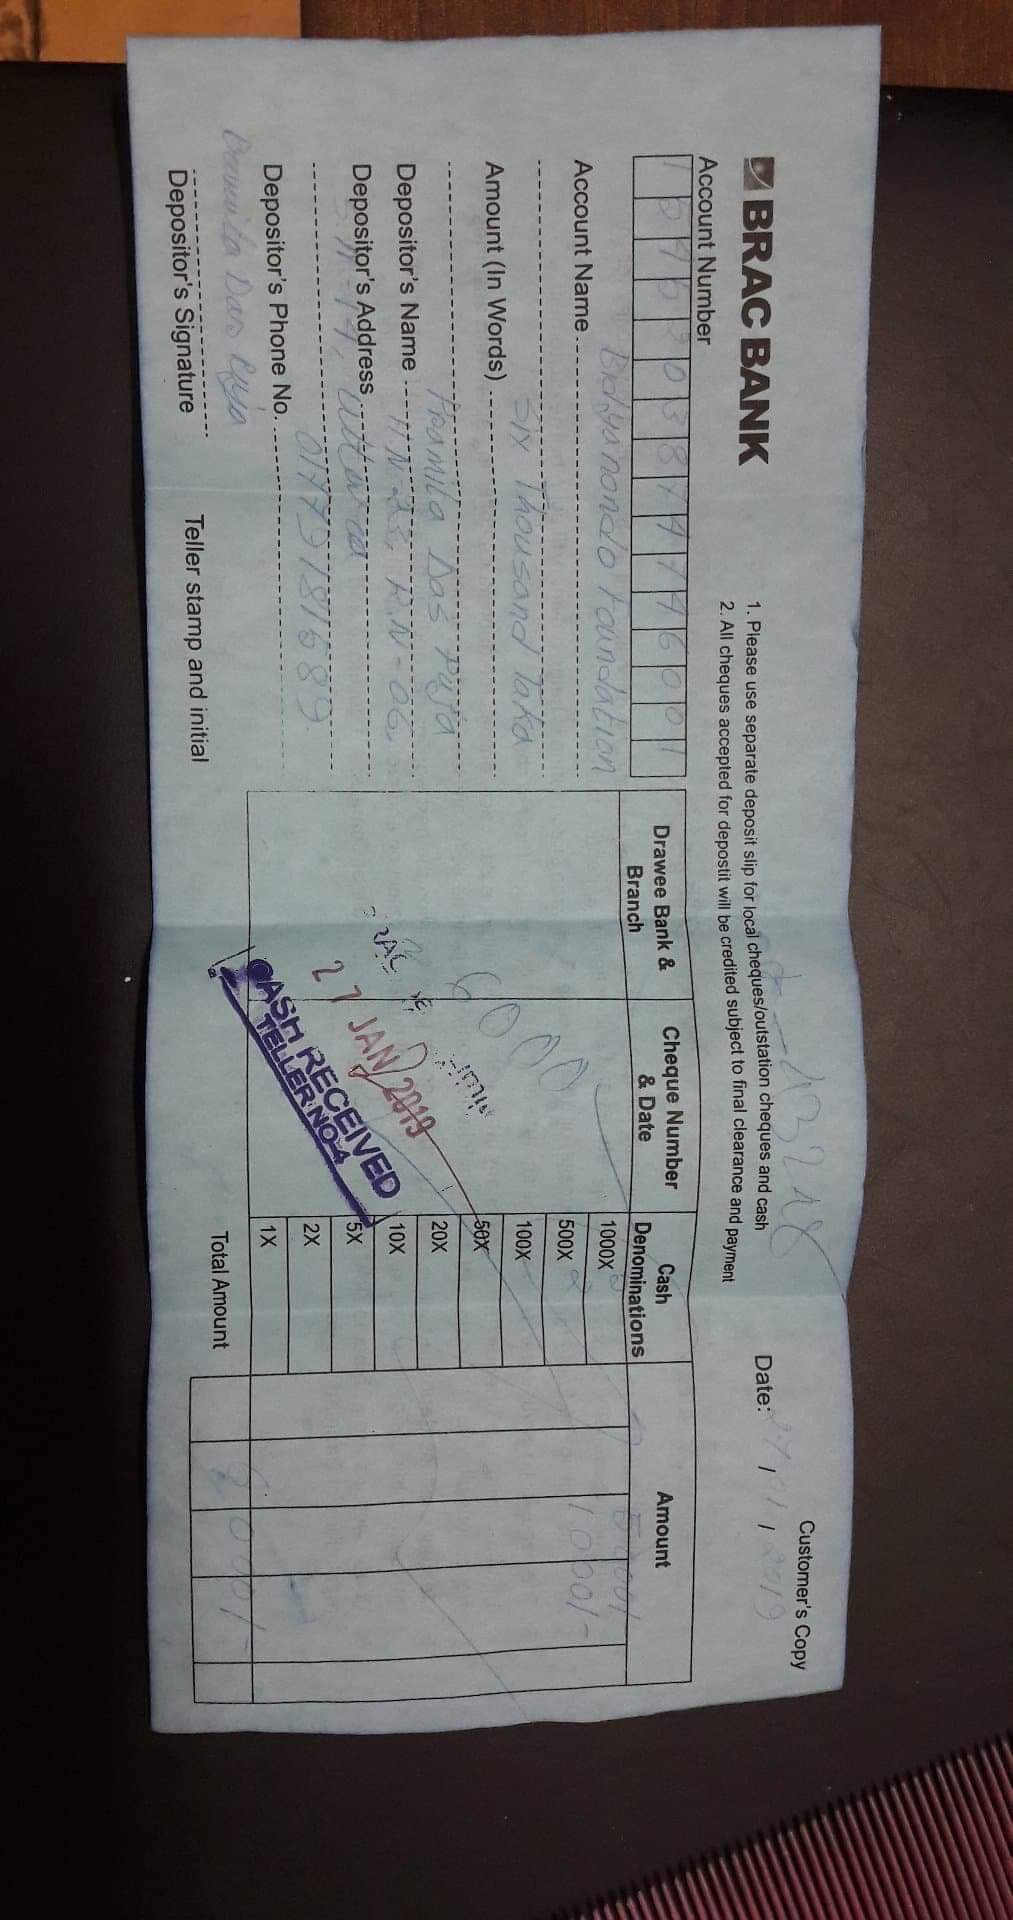 Customer's Copy
BRAC BANK
1. Please use separate deposit slip for local cheques/outstation cheques and cash
2. All cheques accepted for depostit will be credited subject to final clearance and payment
Date: 27/01/2019
Account Number
Account Name Bidyanondo Foundation
Amount (In Words) Six Thousand Taka
Depositor's Name Pramila Das Puja
Depositor's Address H.N-23, R.N-06,
Uttara
Depositor's Phone No.
Depositor's Signature
Teller stamp and initial
Drawee Bank & Branch
Cheque Number & Date
Cash Denominations
Amount
1000X 5000/-
500X 2 1000/-
100X
50X
20X
10X
5X
2X
1X
Total Amount 6000/-
6000
27 JAN 2019
CASH RECEIVED
TELLER NO-4